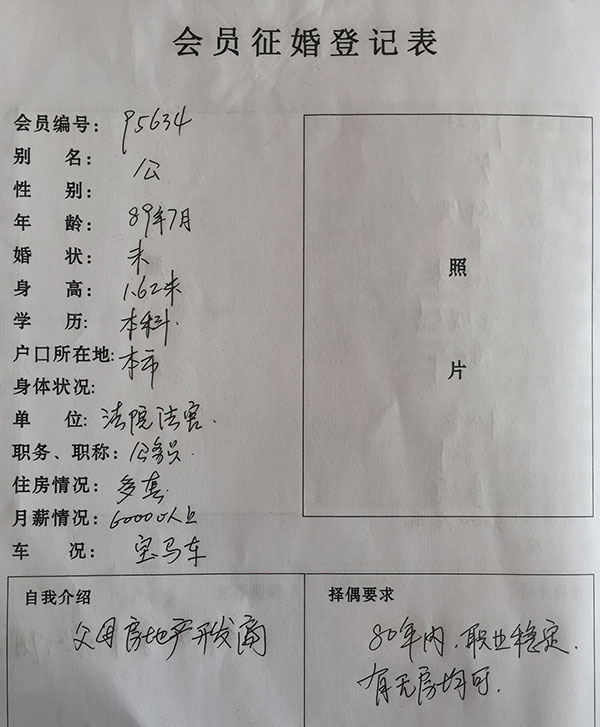 会员征婚登记表
会员编号: P5634
别 名: 公
性 别:
年 龄: 89年7月
婚 状: 未
身 高: 1.62米
学 历: 本科.
户口所在地: 本市
身体状况:
单 位: 法院法官.
职务、职称: 公务员.
住房情况: 多套
月薪情况: 6000以上
车 况: 宝马车
照
片
自我介绍
父母房地产开发商
择偶要求
80年内.职业稳定.
有无房均可.